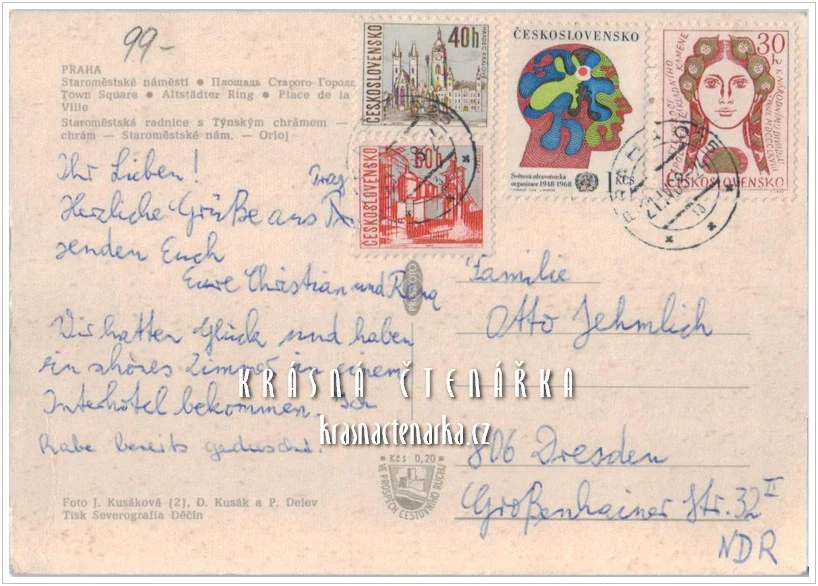 99-
PRAHA
Staroměstské náměstí ● Площадь Старого Города
Town Square ● Altstädter Ring ● Place de la
Ville
Staroměstská radnice s Týnským chrámem —
chrám — Staroměstské nám. — Orloj
Ihr Lieben!
Prag
Herzliche Grüße aus
senden Euch
Eure Christian und
Wir hatten Glück und haben
ein schönes Zimmer in einem
Interhotel bekommen. Ich
habe bereits geduscht.
Foto J. Kusáková (2), D. Kusák a P. Delev
Tisk Severografia Děčín
ČESKOSLOVENSKO
40h
HRADEC KRÁLOVÉ
ČESKOSLOVENSKO
60h
ČESKOSLOVENSKO
Světová zdravotnická
organizace 1948 1968
1 Kčs
30h
ČESKOSLOVENSKO
Familie
Otto Jehmlich
806 Dresden
Großenhainer Str. 32 II
NDR
Kčs 0,20
VE PROSPĚCH CESTOVNÍHO RUCHU
KRÁSNÁ ČTENÁŘKA
krasnactenarka.cz